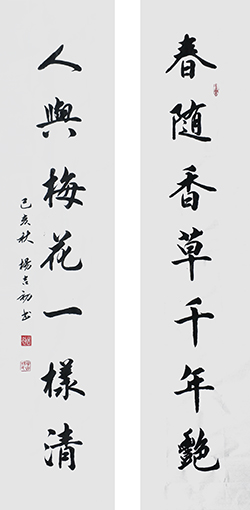 春随香草千年艷
人與梅花一樣清
己亥秋 楊吉初書